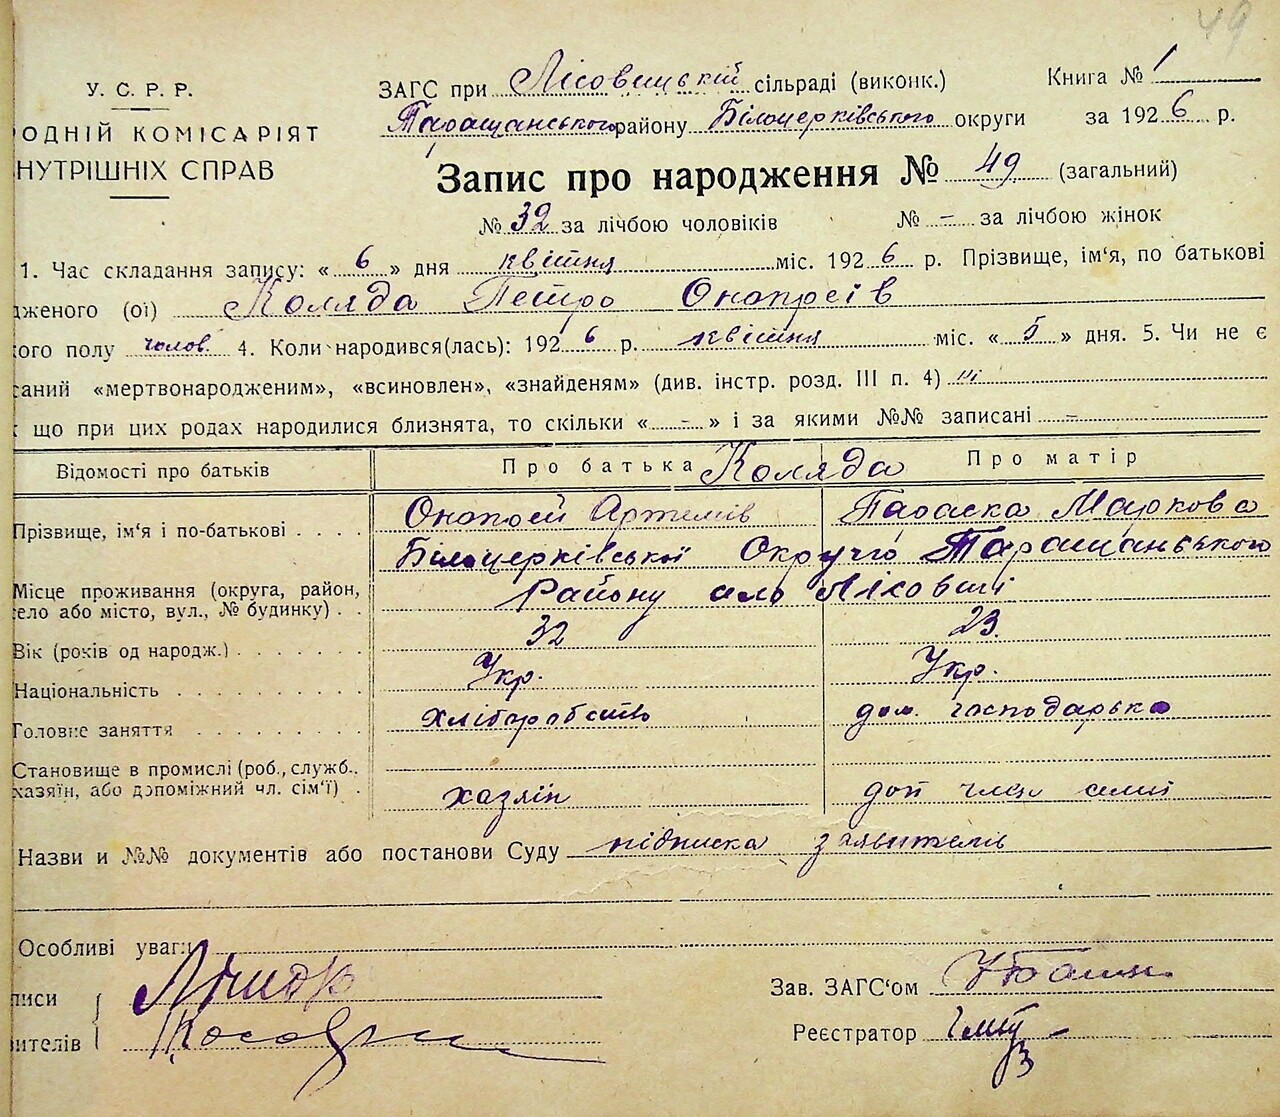 49
У. С. Р. Р.
ОДНІЙ КОМІСАРІЯТ
НУТРІШНІХ СПРАВ
ЗАГС при Лісовицькій сільраді (виконк.) Книга № 1
Таращанського району Білоцерківського округи за 1926 р.
Запис про народження № 49 (загальний)
№ 32 за лічбою чоловіків № - за лічбою жінок
1. Час складання запису: « 6 » дня квітня міс. 1926 р. Прізвище, ім'я, по батькові
дженого (ої) Коляда Петро Онопреів
ого полу чолов. 4. Коли народився(лась): 1926 р. квітня міс. « 5 » дня. 5. Чи не є
саний «мертвонародженим», «всиновлен», «знайденям» (див. інстр. розд. III п. 4) ні
що при цих родах народилися близнята, то скільки « - » і за якими №№ записані -
Відомості про батьків Про батька Коляда Про матір
Прізвище, ім'я і по-батькові Онопрей Артемів Параска Маркова
Білоцерківської Округи Таращанського
Місце проживання (округа, район,
село або місто, вул., № будинку) Району село Лісовичі
Вік (років од народж.) 32 23
Національність Укр. Укр.
Головне заняття хліборобство дом. господарька
Становище в промислі (роб., служб.,
хазяїн, або допоміжний чл. сім'ї) хазяін доп член семї
Назви и №№ документів або постанови Суду підписка заявителів
Особливі уваги
писи
ителів
Зав. ЗАГС'ом
Реєстратор